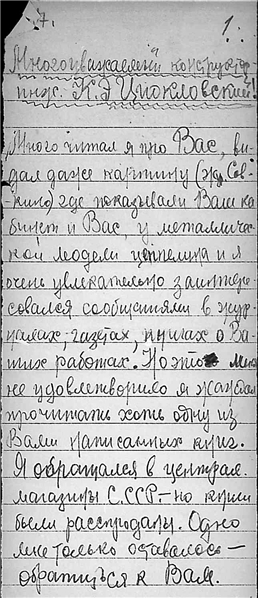 7. 1.
Многоуважаемый конструктор
инж. К.Э Циолковский!
Много читал я про Вас, ви-
дал даже картину (жур. Сов-
кино) где показывали Ваш ка
бинет и Вас, у металличес-
кой модели цеппелина и я
очень увлекательно заинтере
совался сообщениями в жур-
налах, газетах, книгах о Ва-
ших работах. Но это меня
не удовлетворило я жаждал
прочитать хоть одну из
Вами написанных книг.
Я обращался в централ.
магазины С.ССР – но книги
были распроданы. Одно
мне только оставалось –
обратиться к Вам.